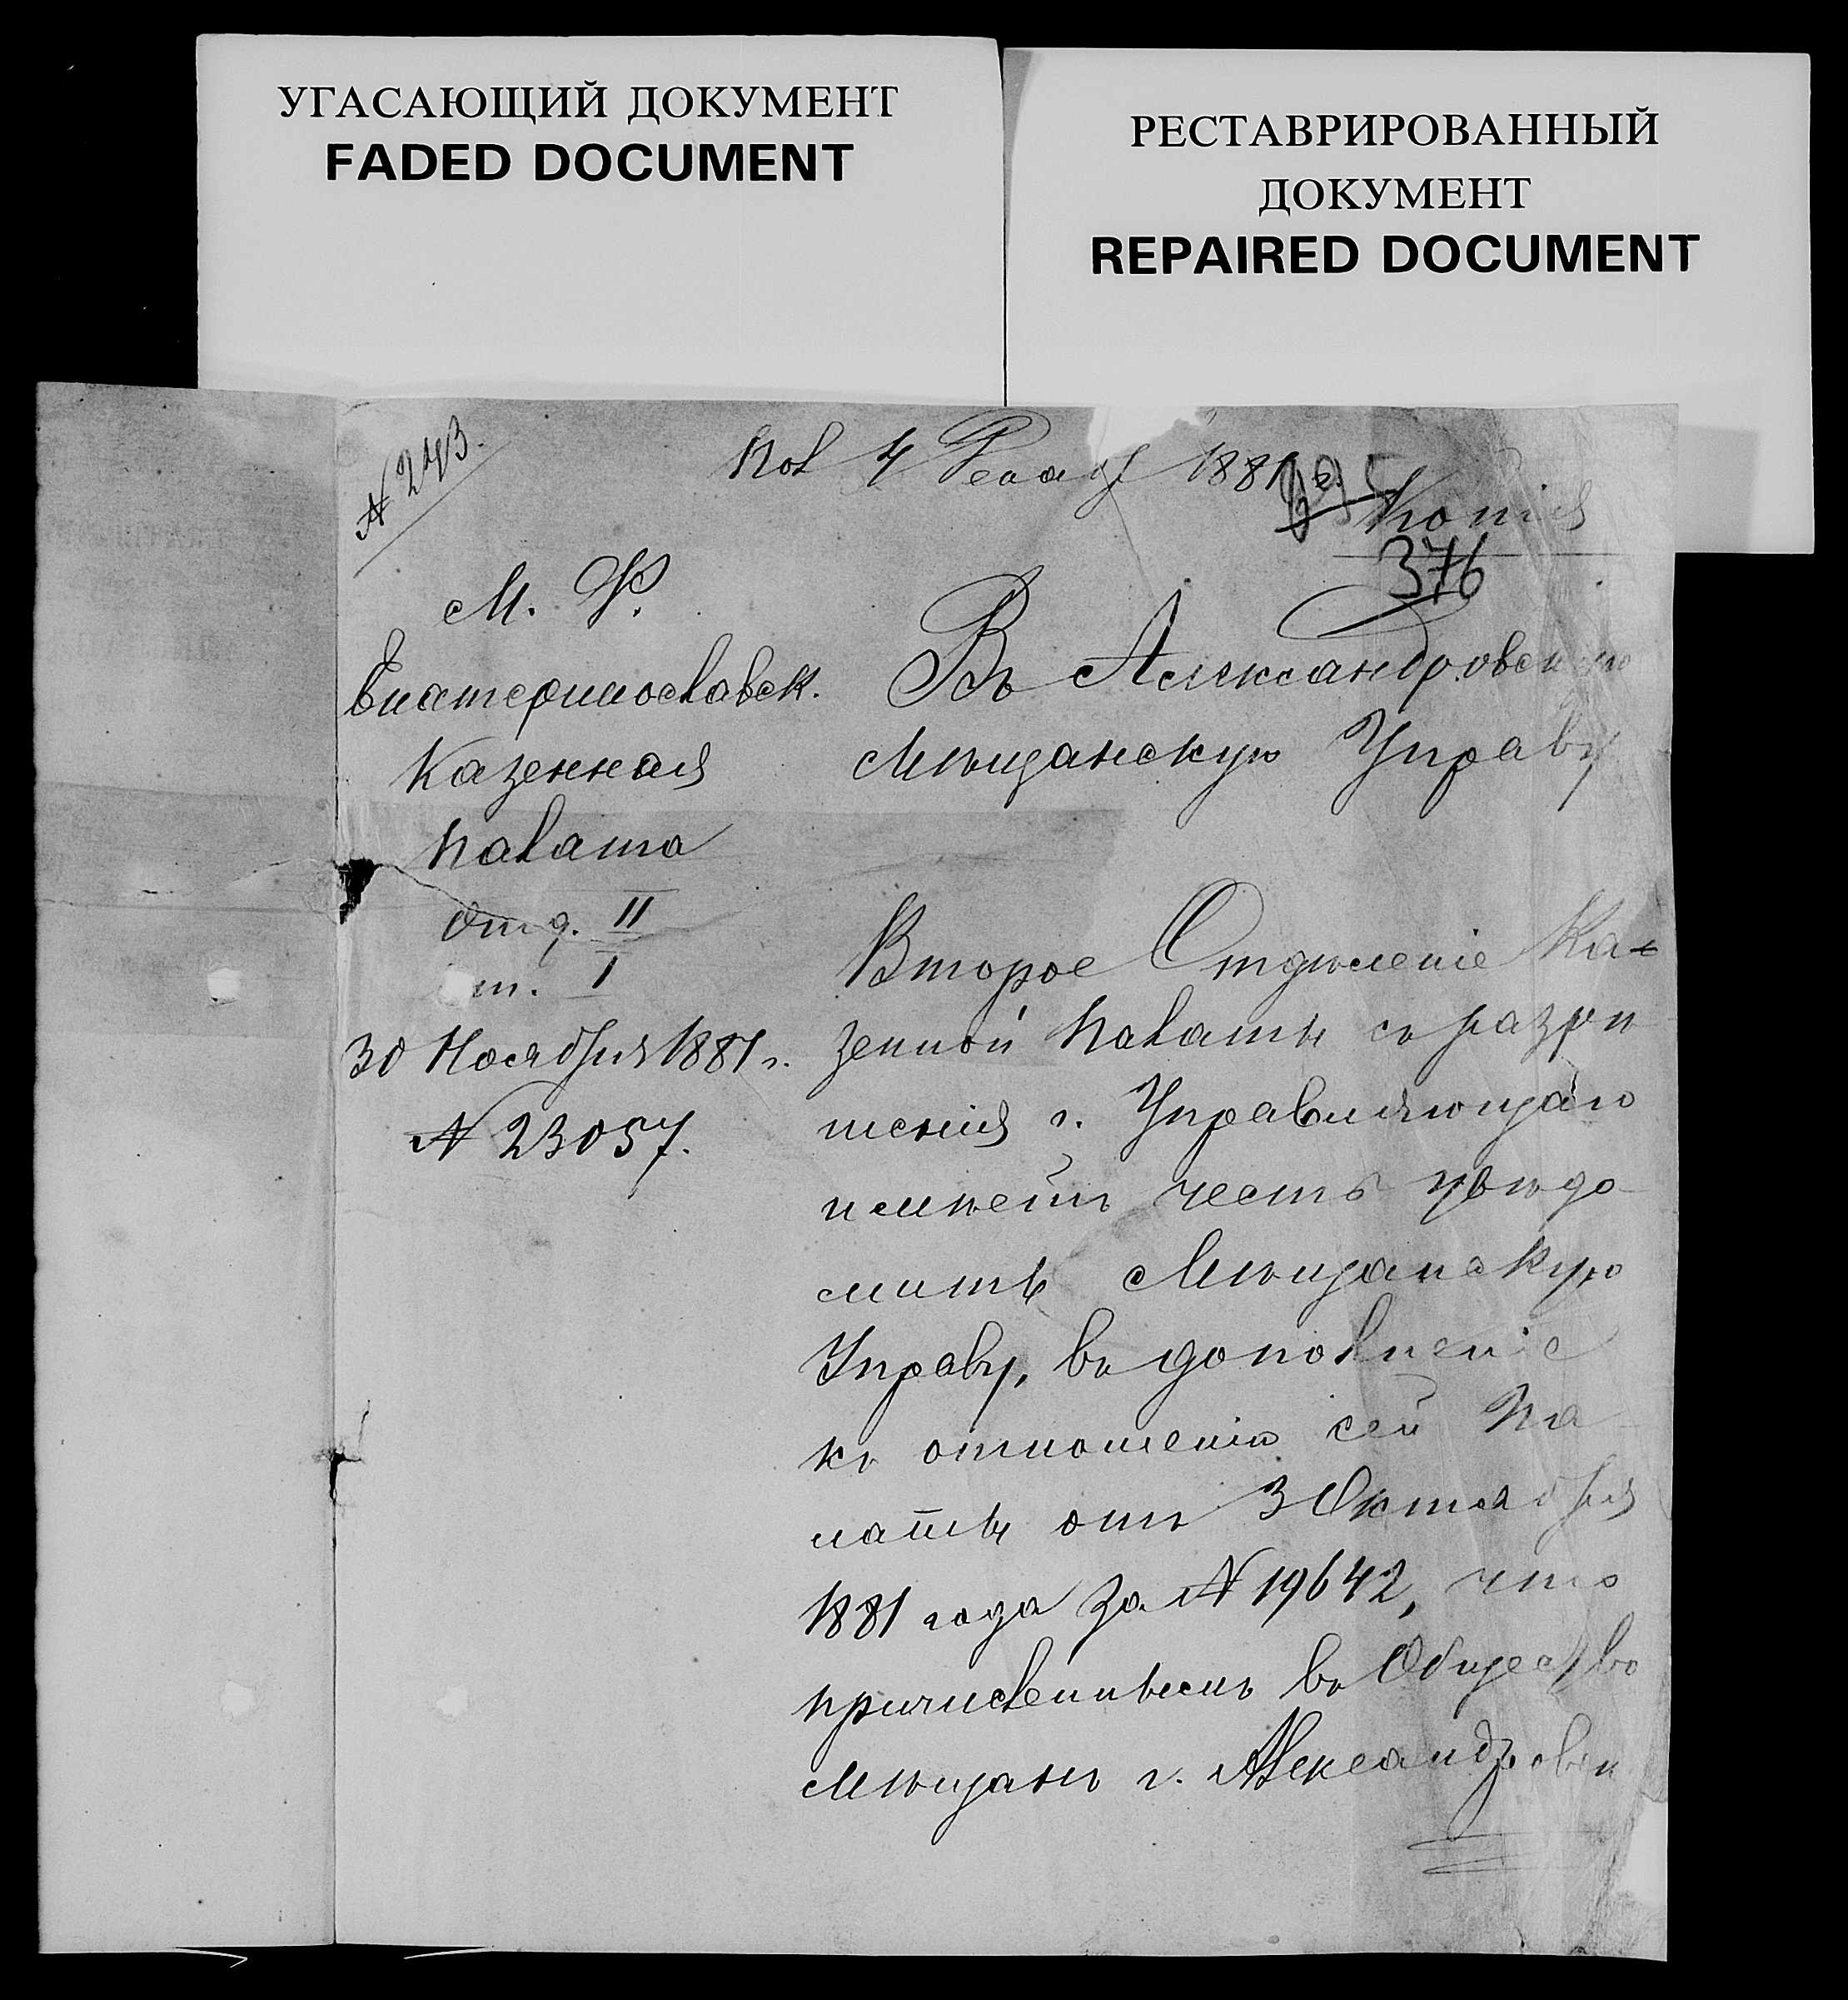 УГАСАЮЩИЙ ДОКУМЕНТ
FADED DOCUMENT
РЕСТАВРИРОВАННЫЙ
ДОКУМЕНТ
REPAIRED DOCUMENT
№ 243.
Пол 4 Декабр 1881 г.
Копія
376
М. Ф.
Екатеринославск.
Казенная
Палата
Отд. II
ст. I
30 Ноября 1881 г.
№ 23057.
Въ Александровскую
Мѣщанскую Управу
Второе Отдѣленіе Ка-
зенной Палаты съ разрѣ
шенія г. Управляющаго
имѣетъ честь увѣдо
мить Мѣщанскую
Управу, въ дополненіе
къ отношенію сей Па
латы отъ 3 Октября
1881 года за № 19642, что
причислившись въ Общество
Мѣщанъ г. Александровск